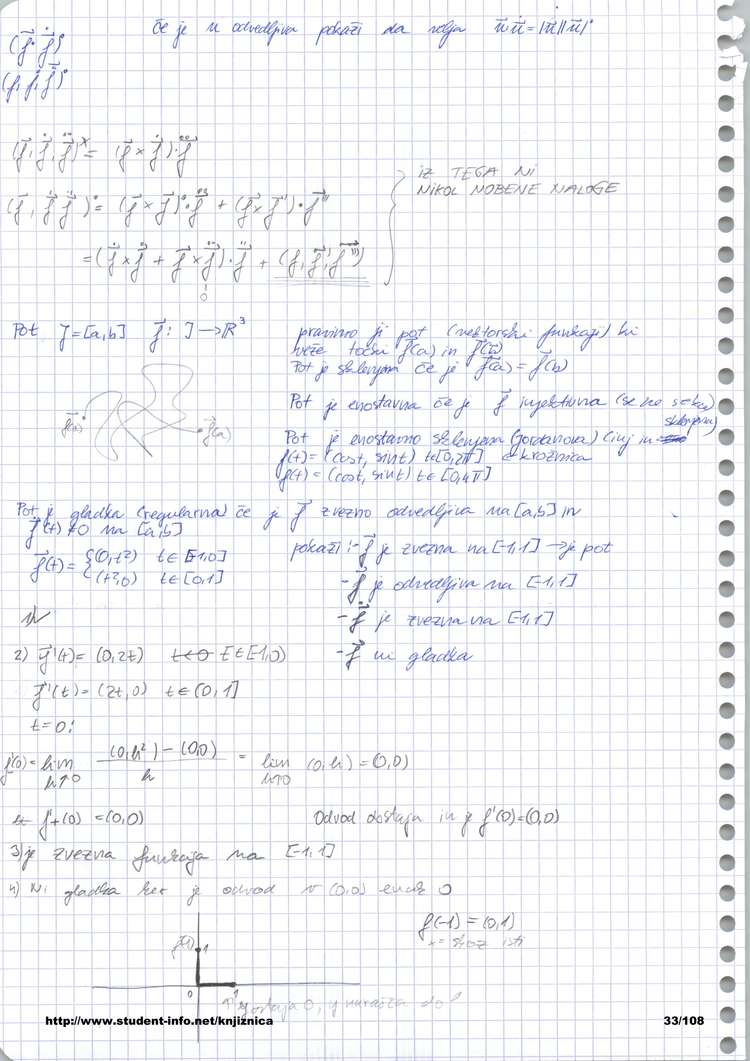 (f⃗ · f⃗˙)˙ če je u odvedljiva pokaži da velja u⃗ u⃗˙ = |u⃗||u⃗|˙
(f, f˙, f¨)˙
(f⃗, f⃗˙, f⃗¨) = (f⃗ × f⃗˙) · f⃗¨
IZ TEGA NI
NIKOL NOBENE NALOGE
(f⃗, f⃗˙, f⃗¨)˙ = (f⃗ × f⃗˙)˙ · f⃗¨ + (f⃗ × f⃗') · f⃗'''
= (f⃗˙ × f⃗˙ + f⃗ × f⃗¨) · f⃗¨ + (f, f⃗', f⃗''')
0
Pot J = [a,b] f⃗: J → R³ pravimo ji pot (vektorski funkciji) ki
veže točki f⃗(a) in f⃗(b)
Pot je sklenjena če je f⃗(a) = f⃗(b)
Pot je enostavna če je f⃗ injektivna (se ne seka)
f⃗(b) f⃗(a)
Pot je enostavno sklenjena (Jordanova) (inj in sklenjena)
f(t) = (cost, sint) t∈[0,2π] krožnica
f(t) = (cost, sint) t∈[0,4π]
Pot je gladka (regularna) če je f⃗ zvezno odvedljiva na [a,b] in
f⃗˙(t) ≠ 0 na [a,b]
f⃗(t) = { (0,t²) t∈[-1,0] pokaži: - f⃗ je zvezna na [-1,1] → je pot
(t²,0) t∈[0,1]
- f⃗ je odvedljiva na [-1,1]
- f⃗˙ je zvezna na [-1,1]
2) f⃗'(t) = (0,2t) t<0 t∈[-1,0) - f⃗ ni gladka
f⃗'(t) = (2t,0) t∈(0,1]
t=0:
f'(0) = lim h↑0 ((0,h²) - (0,0)) / h = lim h↑0 (0,h) = (0,0)
f'+(0) = (0,0) Odvod obstaja in je f'(0) = (0,0)
3) je zvezna funkcija na [-1,1]
4) Ni gladka ker je odvod v (0,0) enak 0
f(-1) = (0,1)
f(-1) 1
0 1
http://www.student-info.net/knjiznica 33/108